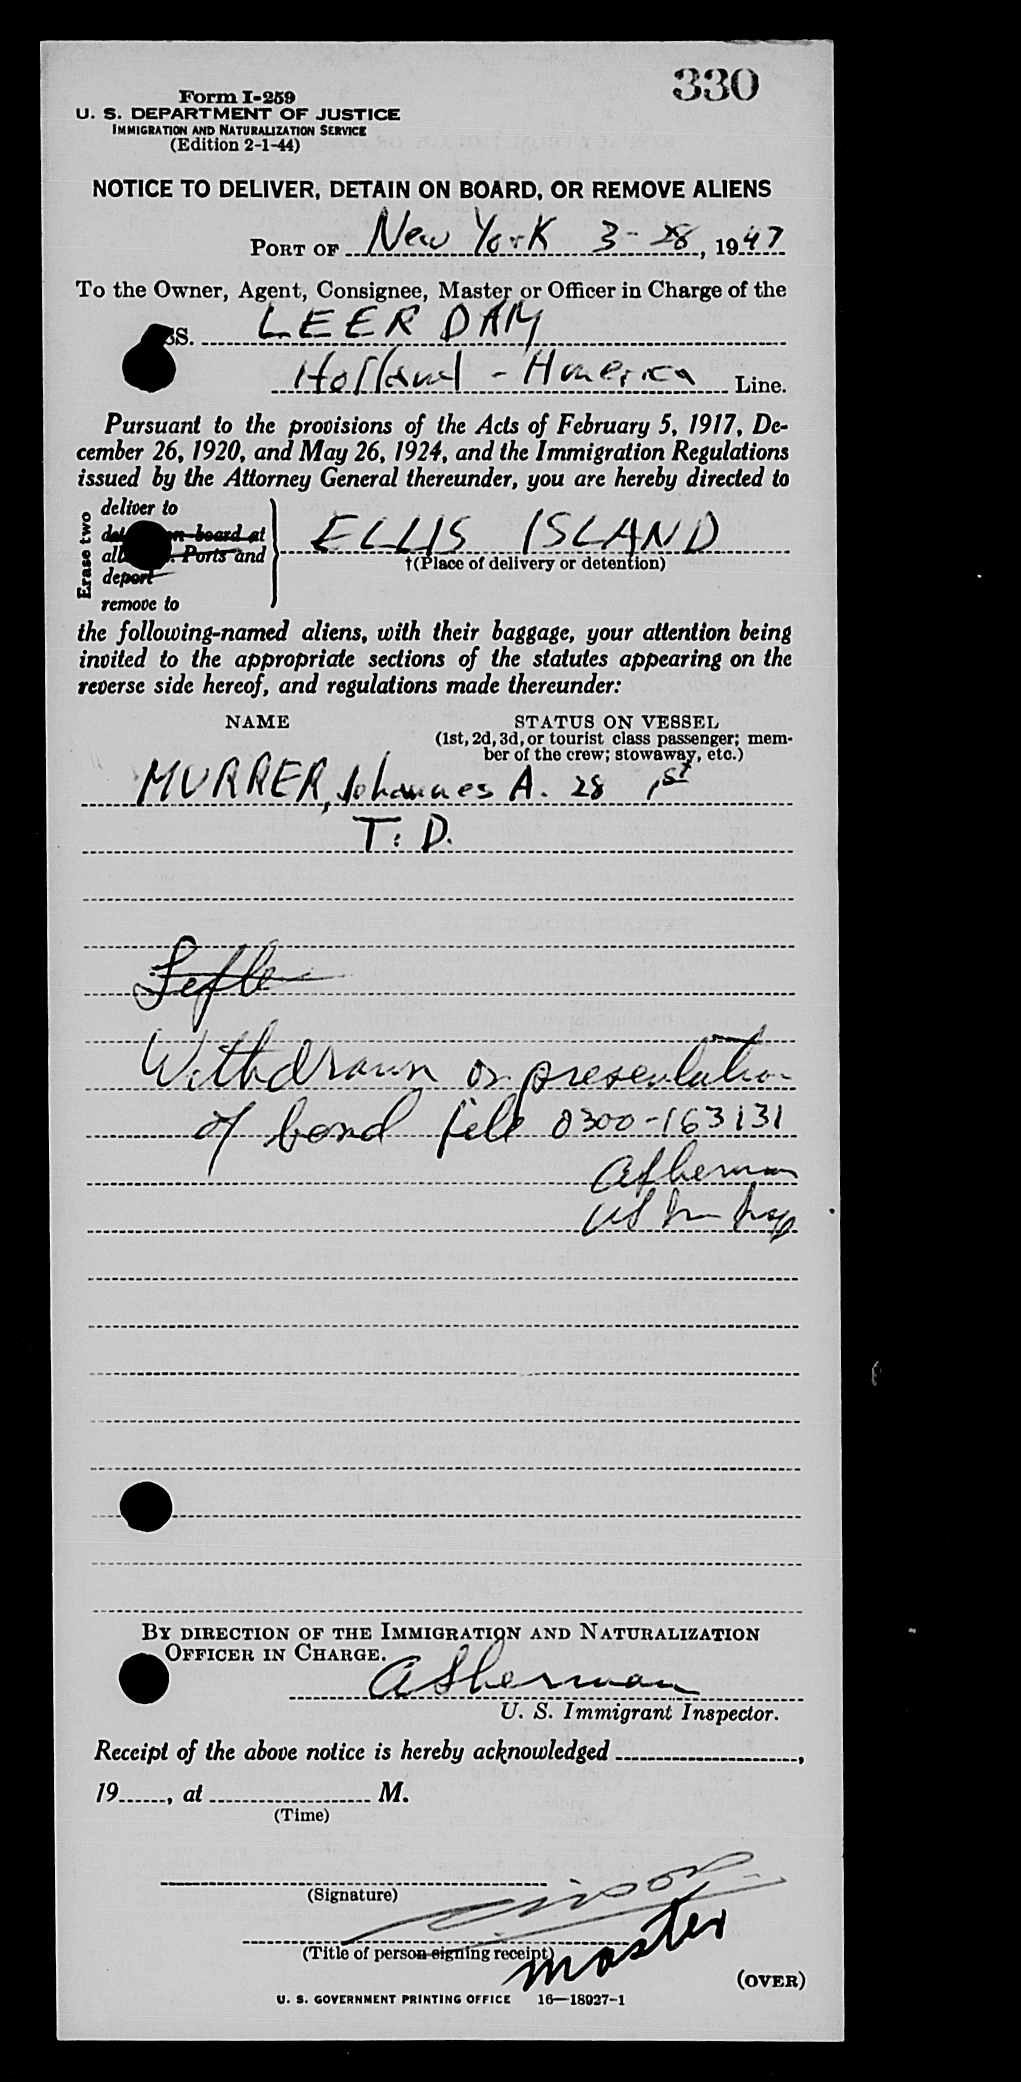 330
Form I-259
U. S. DEPARTMENT OF JUSTICE
IMMIGRATION AND NATURALIZATION SERVICE
(Edition 2-1-44)
NOTICE TO DELIVER, DETAIN ON BOARD, OR REMOVE ALIENS
PORT OF New York 3-28, 1947
To the Owner, Agent, Consignee, Master or Officer in Charge of the
SS. LEERDAM
Holland - America Line.
Pursuant to the provisions of the Acts of February 5, 1917, De-
cember 26, 1920, and May 26, 1924, and the Immigration Regulations
issued by the Attorney General thereunder, you are hereby directed to
Erase two
deliver to
on board at
Ports and
deport
remove to
ELLIS ISLAND
†(Place of delivery or detention)
the following-named aliens, with their baggage, your attention being
invited to the appropriate sections of the statutes appearing on the
reverse side hereof, and regulations made thereunder:
NAME STATUS ON VESSEL
(1st, 2d, 3d, or tourist class passenger; mem-
ber of the crew; stowaway, etc.)
MURRER, Johannes A. 28 1st
T. D.
Withdrawn on presentation
of bond file 0300-163131
Asherman
US Im Insp
BY DIRECTION OF THE IMMIGRATION AND NATURALIZATION
OFFICER IN CHARGE.
Asherman
U. S. Immigrant Inspector.
Receipt of the above notice is hereby acknowledged ,
19 , at M.
(Time)
(Signature)
(Title of person signing receipt)
master
(OVER)
U. S. GOVERNMENT PRINTING OFFICE 16—18927-1